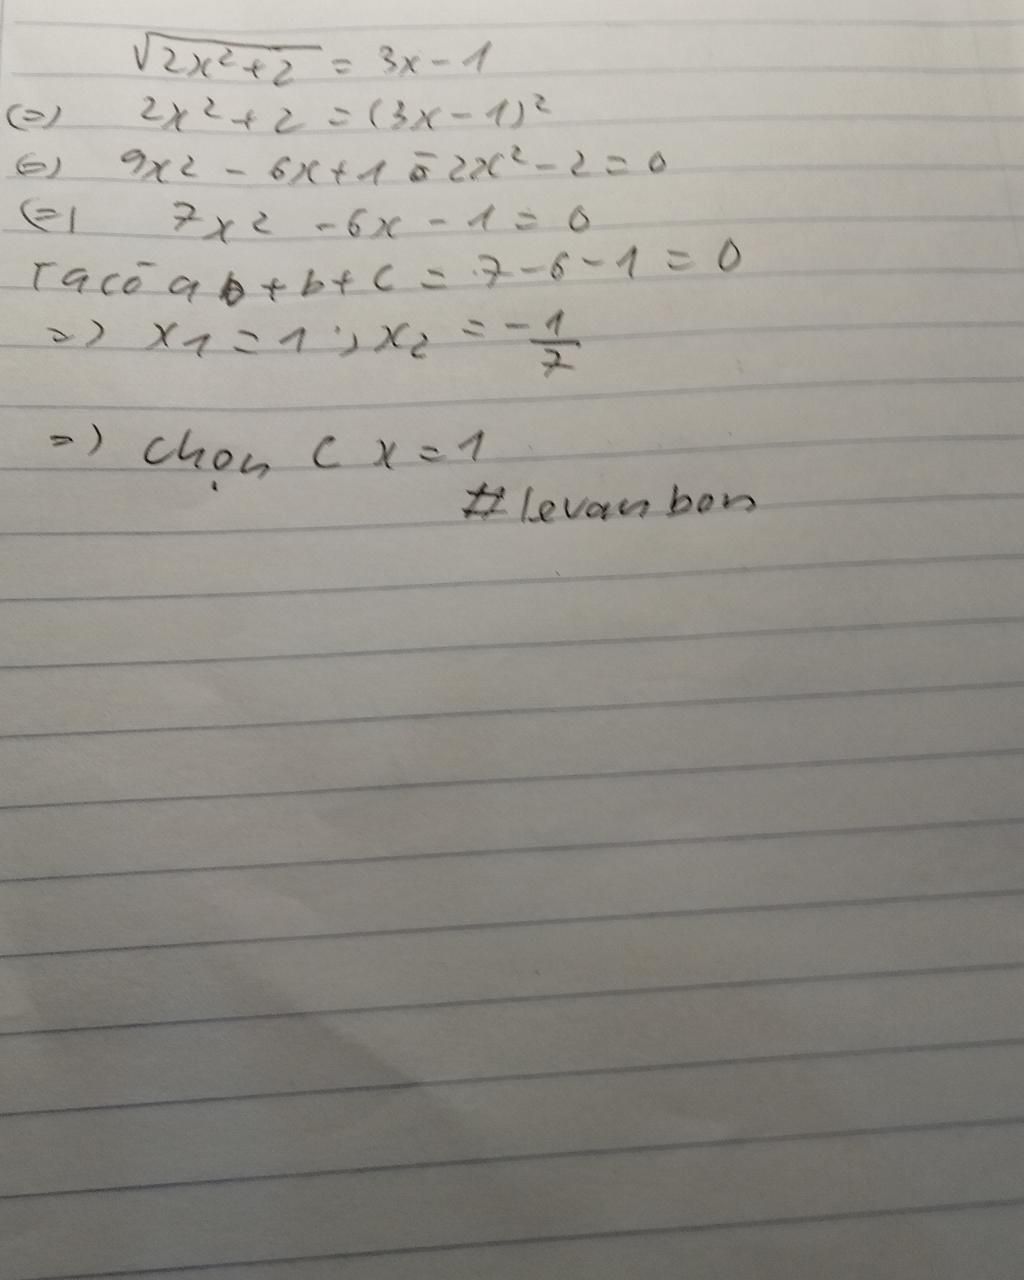 √2x²+2 = 3x-1
(=) 2x²+2 = (3x-1)²
(=) 9x2 - 6x+1 - 2x²-2=0
(=) 7x2 -6x-1=0
Ta có a+b+c = 7-6-1=0
=) x1=1; x2 = -1/7
=) chọn C x=1
#levanbon